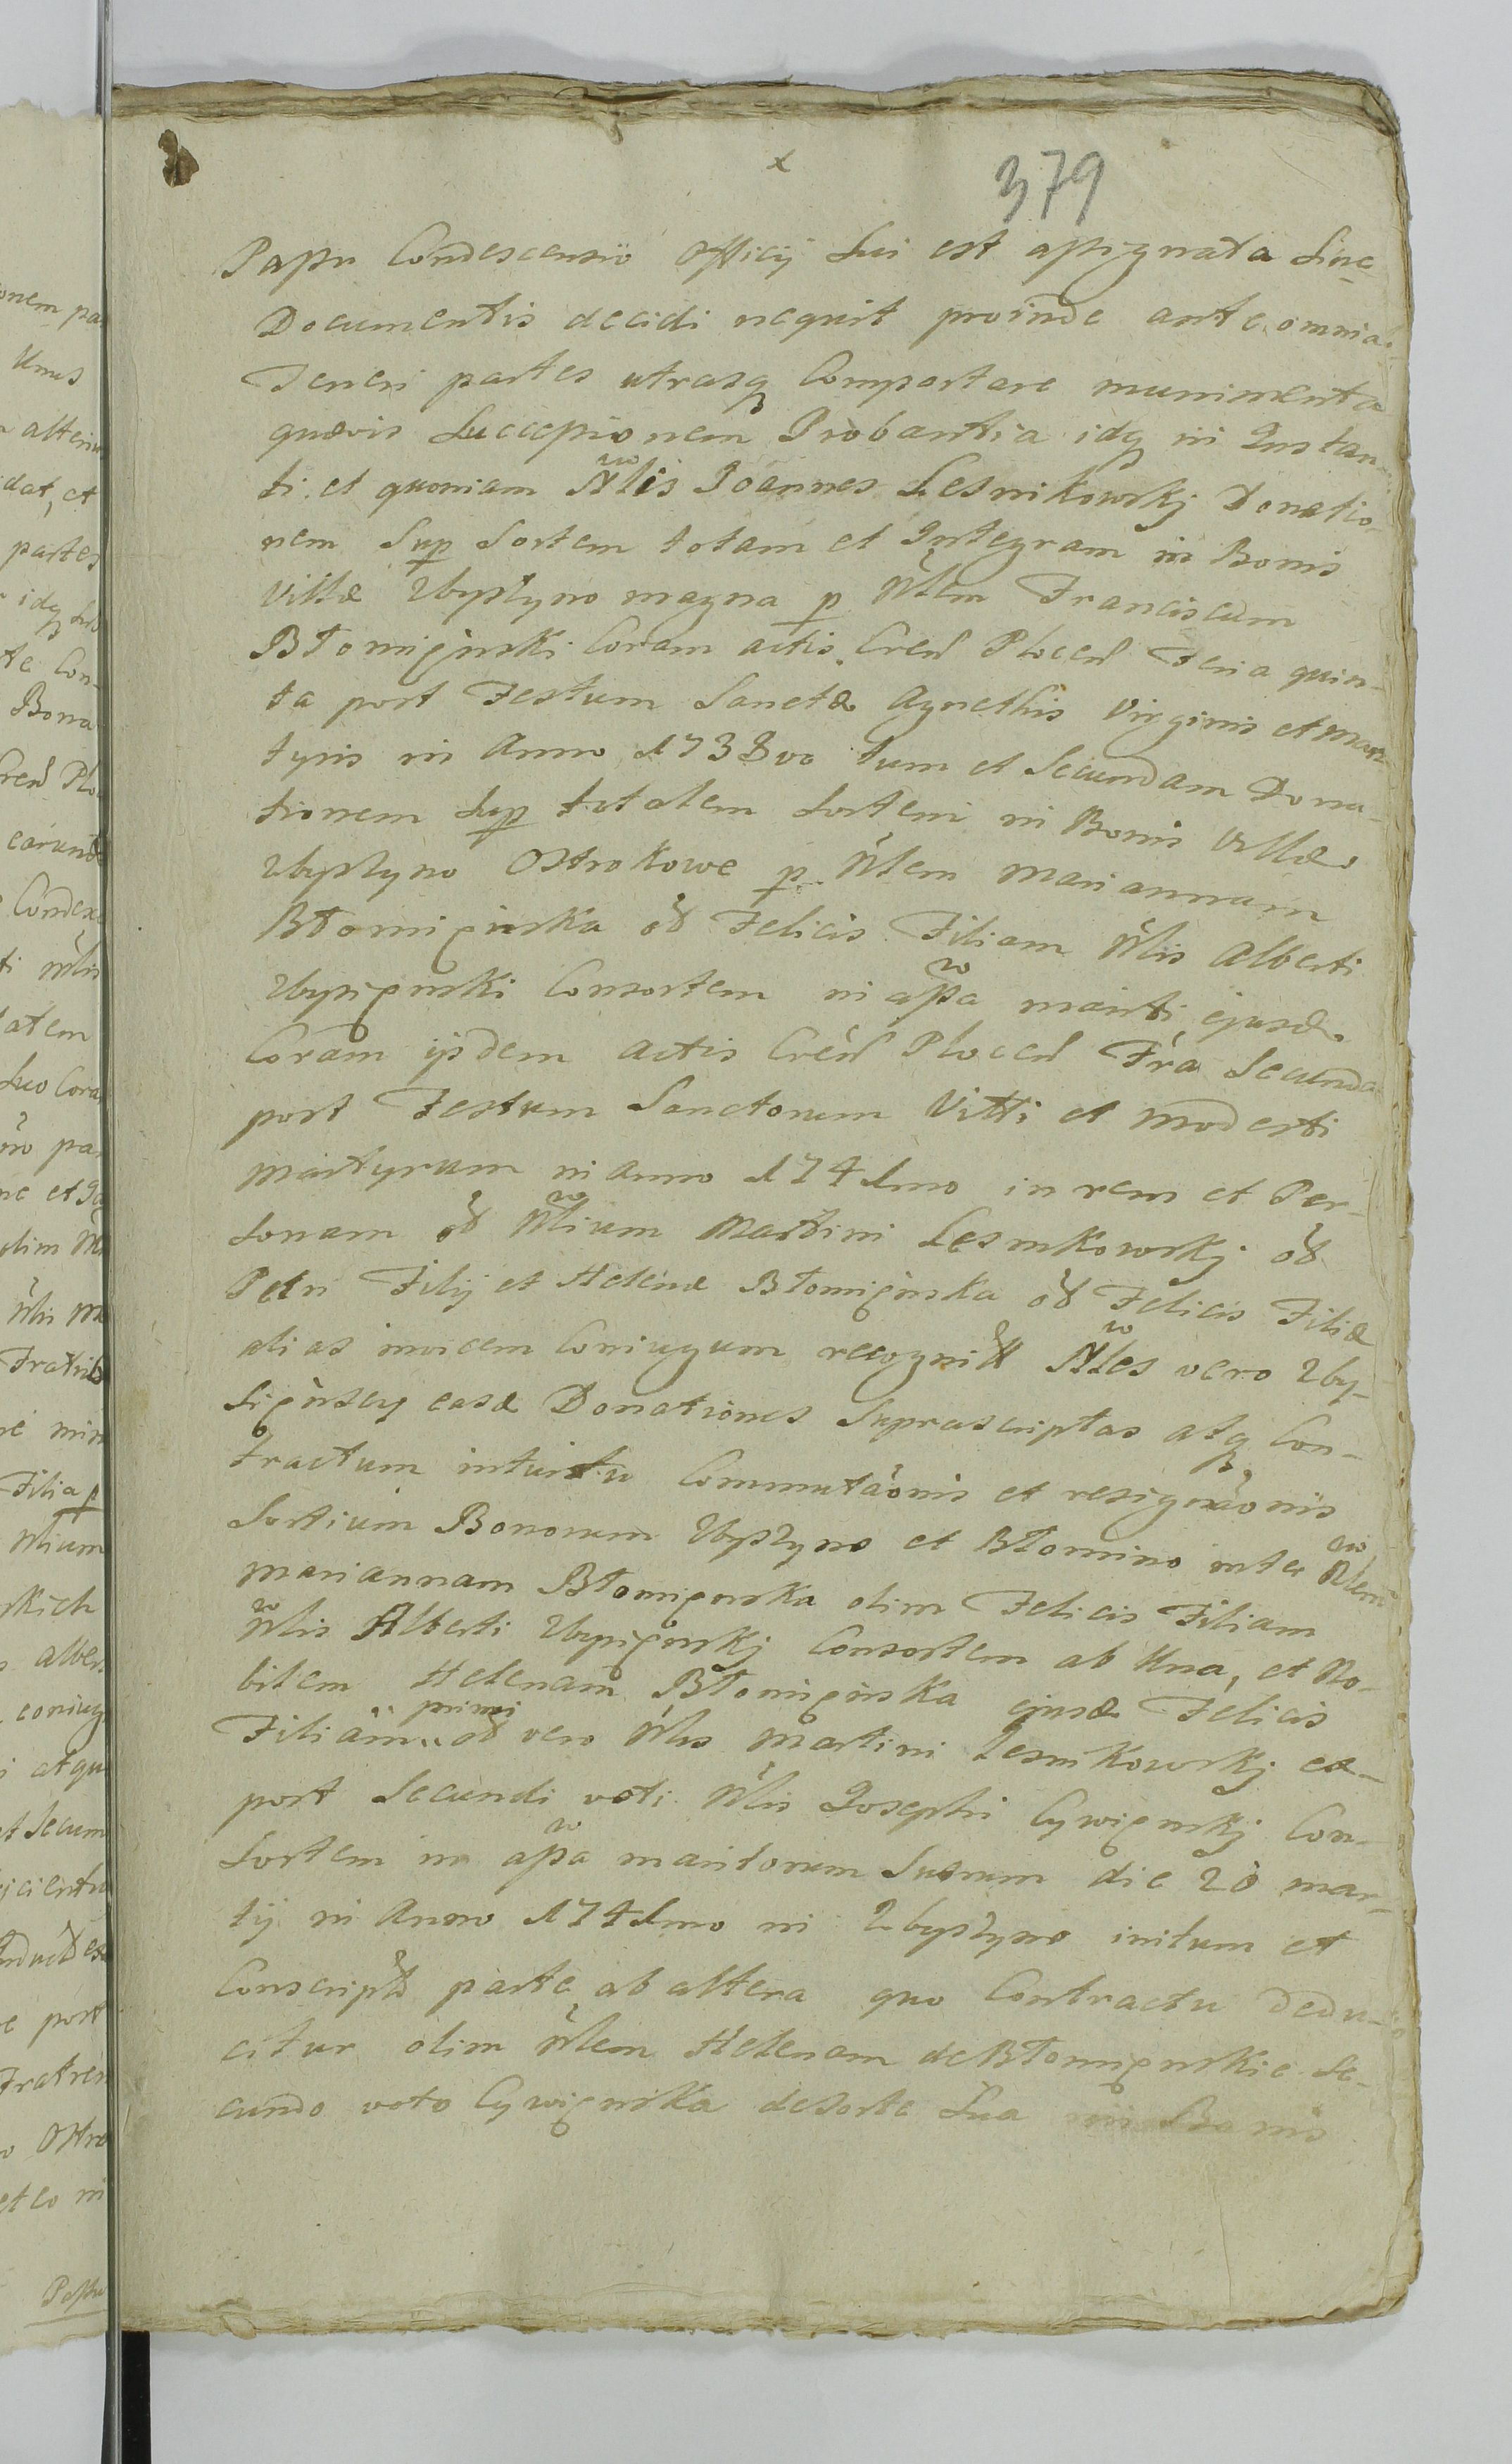 x
379
Passu Condescensio Officij Sui est assignata Sine
Documentis decidi nequit proinde ante omnia
Teneri partes utrasq Comportare munimenta
quævis Succepsionem Probantia idq in Instan-
ti et quoniam Nlis Joannes Lesnikowskj Donatio-
nem Sup Sortem totam et Integram in Bonis
Villæ Zbyszyno magna p Nlem Franciscum
Błomięński Coram actis Cren Plocen Feria quin-
ta post Festum Sanctæ Agnethis Virginis et Mar-
tyris in Anno 1738vo tum et Secundam Dona-
tionem Sup totalem Sortem in Bonis Villæ
Zbyszyno Ostrokowe p Nlem Mariannam
Błomięńska od Felicis Filiam Nlis Alberti
Zbysięnski Consortem in assa mariti ejusd
Coram ijsdem Actis Cren Plocen Fra Secunda
post Festum Sanctorum Vitti et Modesti
Martyrum in Anno 1741mo in rem et Per-
sonam od Nlium Martini Lesnikowskj od
Petri Filij et Helenæ Błomięńska od Felicis Filiæ
alias invicem Coniugum recognitt Nles vero Zby-
sięńscy easd Donationes Suprascriptas atq Con-
tractum intuitu Commutaonis et resignaonis
Sortium Bonorum Zbyszyno et Błomino inter Nlem
Mariannam Błomięnska olim Felicis Filiam
Nlis Alberti Zbysięnskj Consortem ab Una, et No-
bilem Helenam Błomięńska ejusd Felicis
Filiam primi od vero Nlis Martini Lesnikowskj ex-
post Secundi voti Nlis Josephi Cywięnskj Con-
sortem in assa maritorum Suorum die 20 Mar-
tij in Anno 1741mo in Zbyszyno initum et
Conscript parte ab altera quo Contractu Dedu-
citur olim Nlem Helenam de Błomięnskie Se-
cundo voto Cywięnska de Sorte Sua in Bonis